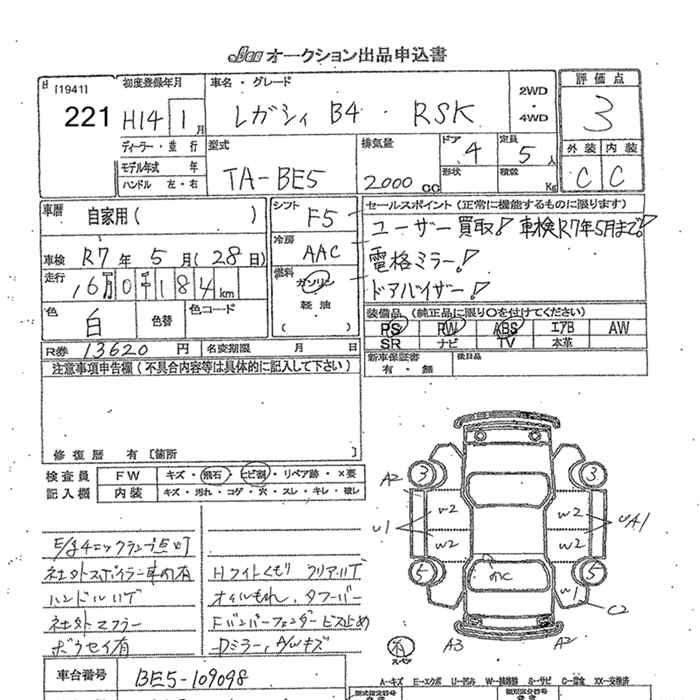 JAA オークション出品申込書
[1941]
221
初度登録年月
H14 1月
車名・グレード
レガシィ B4 ・ RSK
2WD・4WD
評価点
3
外装 内装
C C
ディーラー・並行
モデル年式 年
ハンドル 左・右
型式
TA-BE5
排気量
2000 cc
ドア 4
形状
定員 5 人
積載 Kg
車歴 自家用( )
車検 R7年 5月(28日)
走行 16万0千184km
色 白 色替 色コード
シフト F5
冷房 AAC
燃料 ガソリン
軽油
( )
セールスポイント(正常に機能するものに限ります)
ユーザー買取! 車検R7年5月まで!
電格ミラー!
ドアバイザー!
装備品(純正品に限り○を付けてください)
PS RW ABS エアB AW
SR ナビ TV 本革
新車保証書 有・無
後日品
R券 13620 円 名変期限 月 日
注意事項申告欄(不具合内容等は具体的に記入して下さい)
修復歴 有〔箇所 〕
検査員記入欄
FW キズ・飛石・ヒビ割・リペア跡・×要
内装 キズ・汚れ・コゲ・穴・スレ・キレ・破レ
E/g4ニックランプ点灯
社外スポイラー車の有
ハンドルハゲ
社外マフラー
Hライトくもり クリアハゲ
オイルもれ、タワーバー
Fバンパーフェンダービス止め
Dミラー、A/Wキズ
3 3
A2
W2 W2
U1 UA1
W2 W2
5 5
W1
C2
A3 A2
車台番号 BE5-109098
A-キズ E-エクボ U-凹み W-補修跡 S-サビ C-腐食 XX-交換済